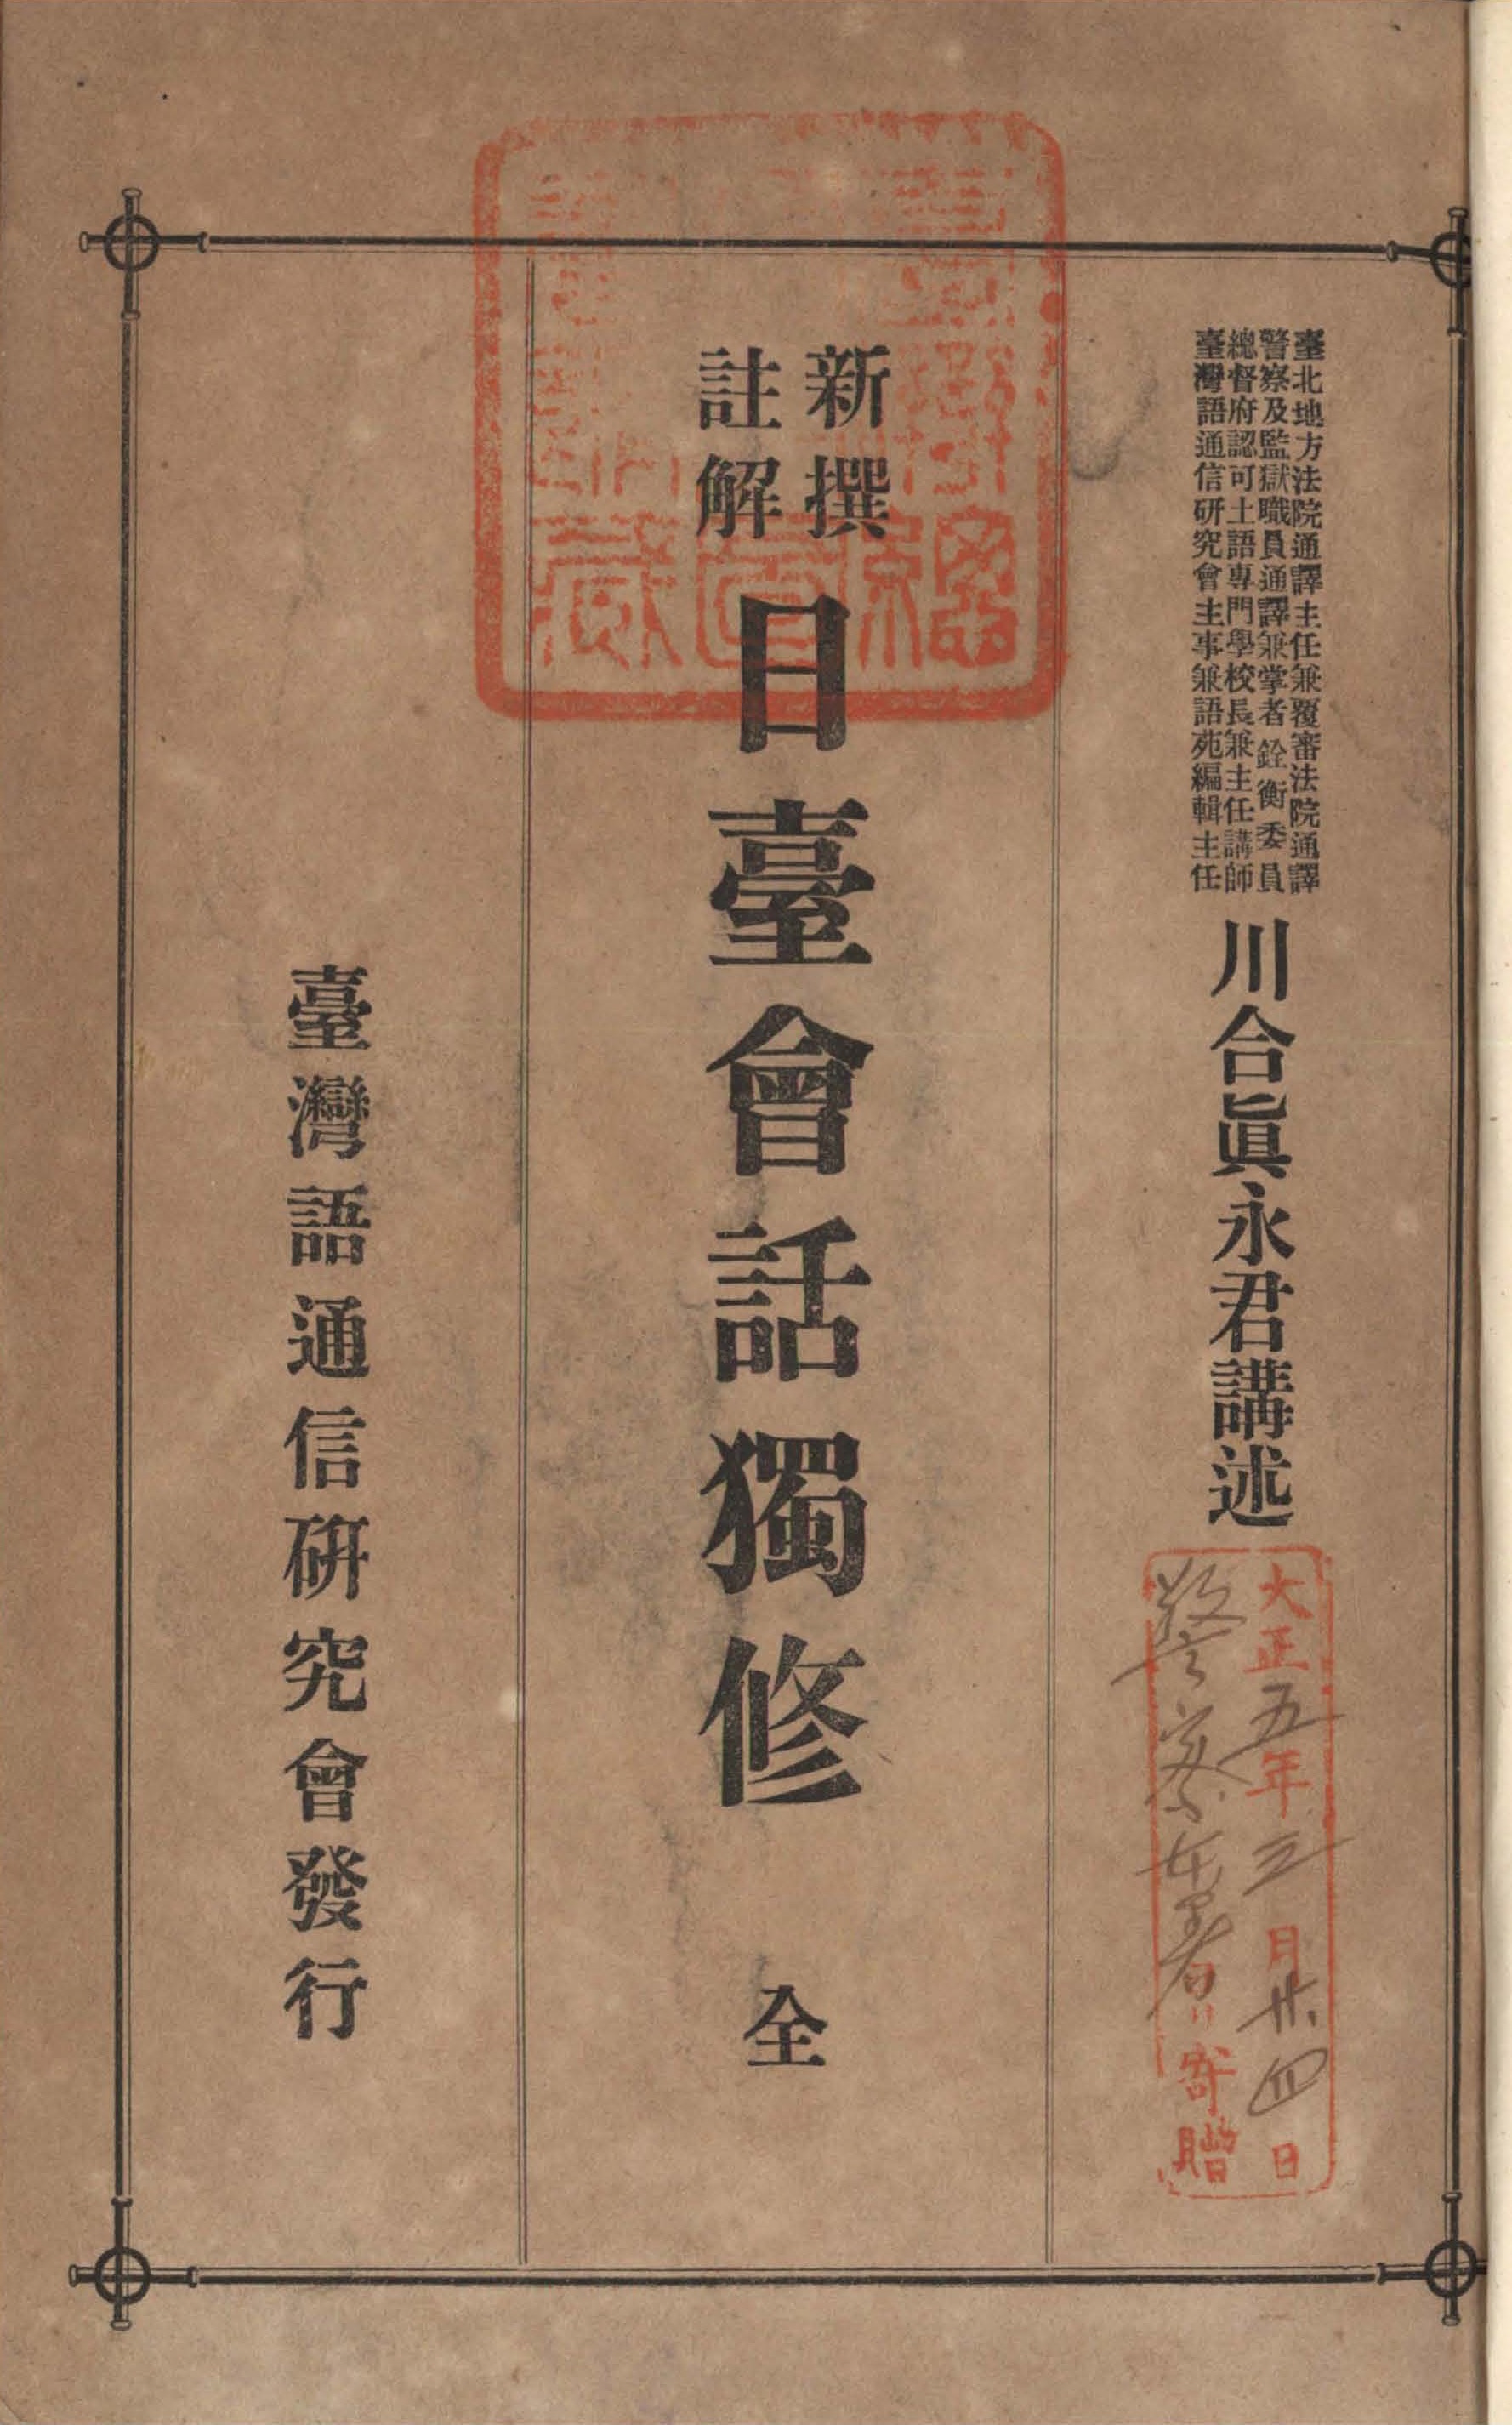 臺北地方法院通譯主任兼覆審法院通譯
警察及監獄職員通譯兼掌者銓衡委員
總督府認可土語專門學校長兼主任講師
臺灣語通信研究會主事兼語苑編輯主任
川合眞永君講述
大正五年三月廿四日
寄贈
新撰
註解
日臺會話獨修 全
臺灣語通信研究會發行